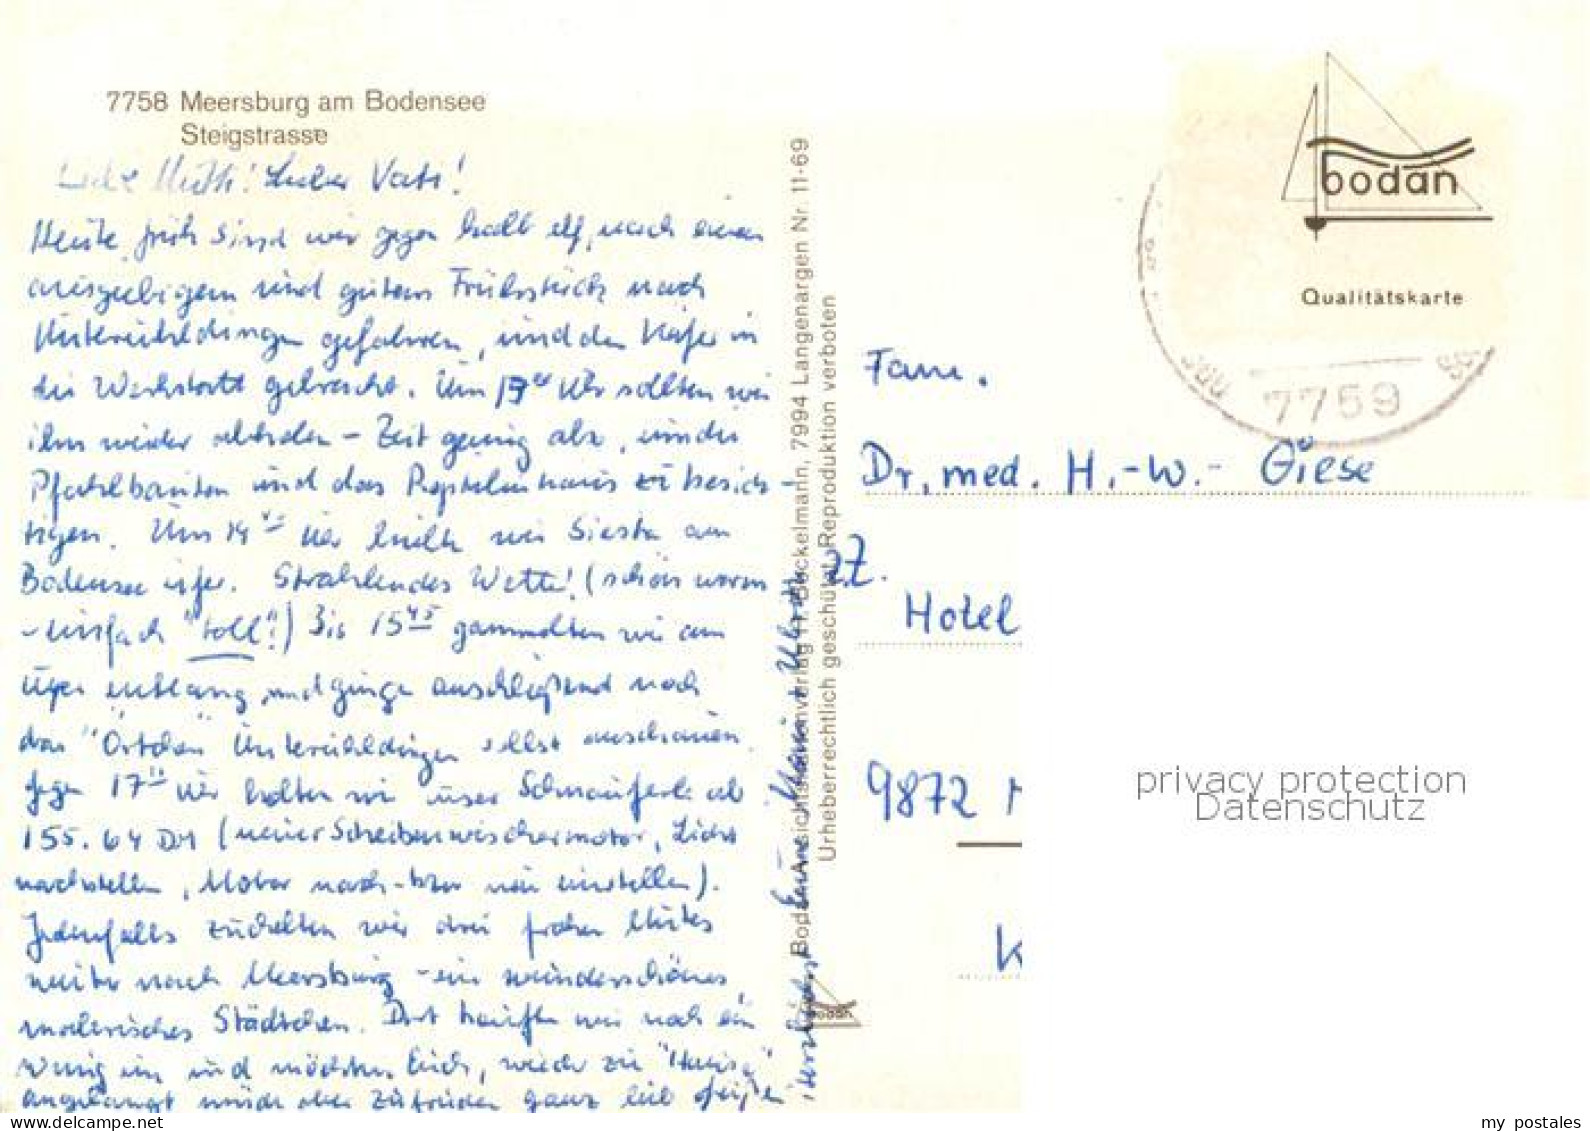 7758 Meersburg am Bodensee
Steigstrasse
Liebe Mutti! Lieber Vati!
Heute früh sind wir gegen halb elf, nach einem
ausgiebigem und gutem Frühstück nach
Unteruhldingen gefahren, und den Käfer in
die Werkstatt gebracht. Um 17 Uhr sollten wir
ihn wieder abholen – Zeit genug also, um die
Pfahlbauten und das Reptilienhaus zu besich-
tigen. Um 14 Uhr hielten wir Siesta am
Bodensee ufer. Strahlendes Wetter! (schön warm
- einfach "toll"!) Bis 15 45 gammelten wir am
Ufer entlang, und gingen anschließend noch
das "Örtchen" Unteruhldingen selbst anschauen.
Gegen 17 Uhr holten wir unser Schnauferle ab
155.64 DM (neuer Scheibenwischermotor, Licht
nachstellen, Motor nach- bzw neu einstellen).
Jedenfalls zuckelten wir drei frohen Mutes
weiter nach Meersburg - ein wunderschönes,
malerisches Städtchen. Dort kauften wir noch ein
wenig ein und möchten Euch, wieder zu "Hause"
angelangt müde aber zufrieden ganz lieb grüßen
Herzlichst Eure
Bodan-Ansichtskartenverlag H. Bockelmann, 7994 Langenargen Nr. 11-69
Urheberrechtlich geschützt Reproduktion verboten
bodan
bodan
Qualitätskarte
7759
Fam.
Dr. med. H.-W.- Giese
z.Z.
Hotel
9872 M
K
privacy protection
Datenschutz
my postales